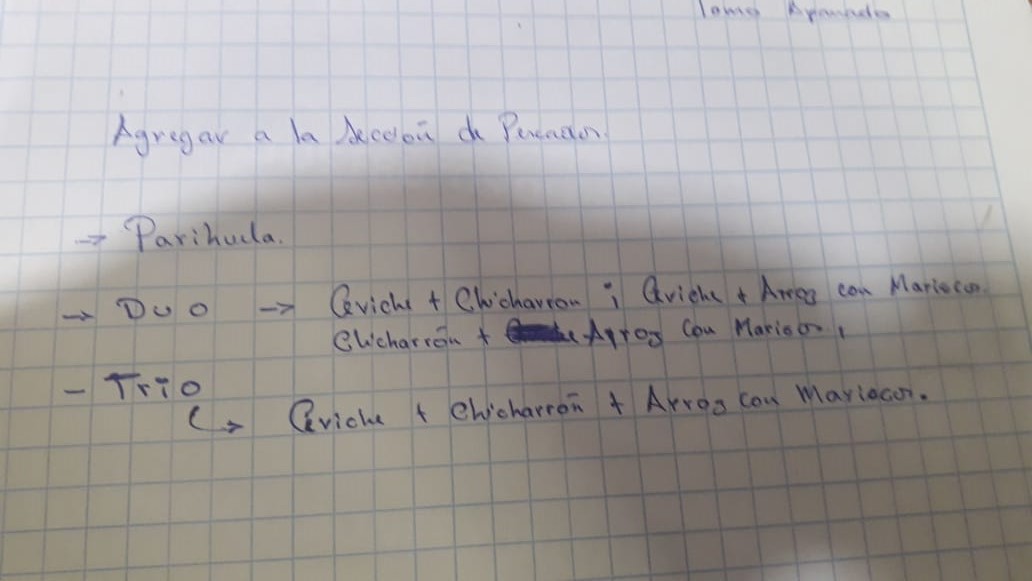 Lomo Apanado
Agregar a la sección de Pescados.
→ Parihuela.
→ Duo → Ceviche + Chicharron ; Ceviche + Arroz con Mariscos.
Chicharrón + Arroz con Mariscos,
- Trio
↳ Ceviche + Chicharrón + Arroz con Mariscos.